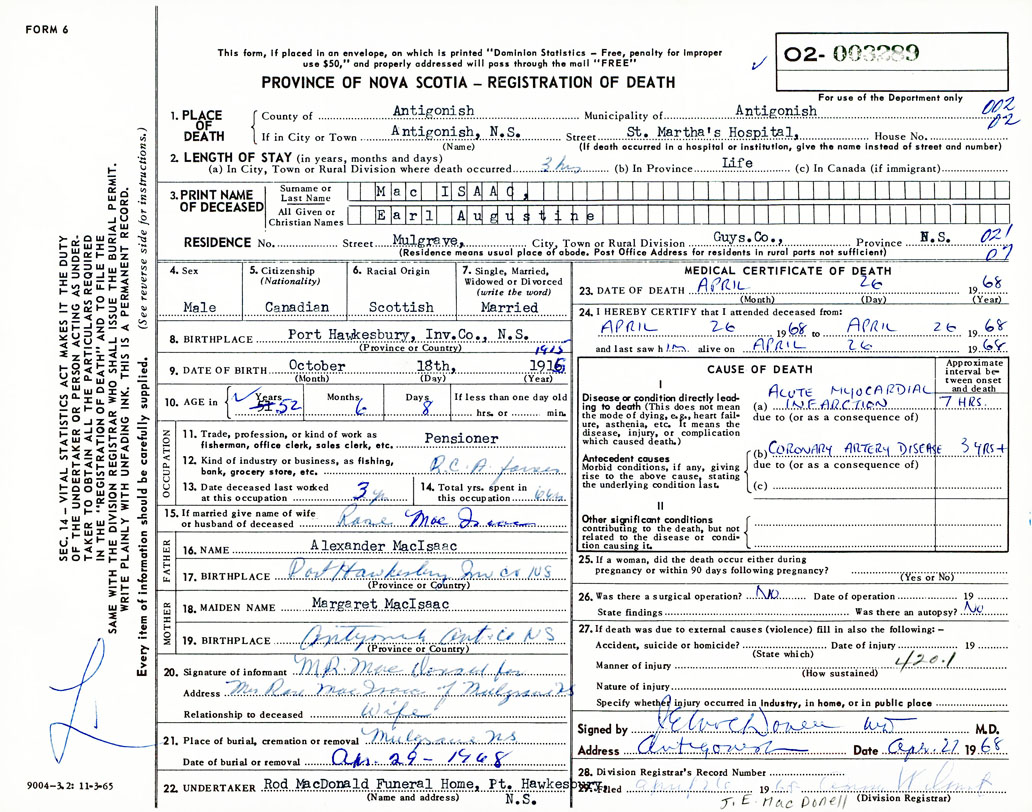 FORM 6
This form, if placed in an envelope, on which is printed "Dominion Statistics – Free, penalty for improper
use $50," and properly addressed will pass through the mail "FREE"
02- 003289
For use of the Department only
PROVINCE OF NOVA SCOTIA – REGISTRATION OF DEATH
1. PLACE OF DEATH
County of Antigonish Municipality of Antigonish 002
If in City or Town Antigonish, N.S. Street St. Martha's Hospital, House No. 02
(Name) (If death occurred in a hospital or institution, give the name instead of street and number)
2. LENGTH OF STAY (in years, months and days)
(a) In City, Town or Rural Division where death occurred 3 hrs (b) In Province Life (c) In Canada (if immigrant)
3. PRINT NAME OF DECEASED
Surname or Last Name Mac ISAAC,
All Given or Christian Names Earl Augustine
RESIDENCE No. Street Mulgrave, City, Town or Rural Division Guys.Co., Province N.S. 021
(Residence means usual place of abode. Post Office Address for residents in rural parts not sufficient) 07
4. Sex Male
5. Citizenship (Nationality) Canadian
6. Racial Origin Scottish
7. Single, Married, Widowed or Divorced (write the word) Married
8. BIRTHPLACE Port Hawkesbury, Inv.Co., N.S.
(Province or Country)
1915
9. DATE OF BIRTH October 18th, 1916
(Month) (Day) (Year)
10. AGE in Years 51 52 Months 6 Days 8 If less than one day old hrs. or min.
OCCUPATION
11. Trade, profession, or kind of work as fisherman, office clerk, sales clerk, etc. Pensioner
12. Kind of industry or business, as fishing, bank, grocery store, etc. R.C.A.
13. Date deceased last worked at this occupation 3
14. Total yrs. spent in this occupation
15. If married give name of wife or husband of deceased Mac Isaac
FATHER
16. NAME Alexander MacIsaac
17. BIRTHPLACE Port Hawkesbury Inv co NS
(Province or Country)
MOTHER
18. MAIDEN NAME Margaret MacIsaac
19. BIRTHPLACE Antigonish Ant. co NS
(Province or Country)
20. Signature of informant M.R. Mac Donald for
Address Mrs Mac Isaac Mulgrave NS
Relationship to deceased Wife
21. Place of burial, cremation or removal Mulgrave NS
Date of burial or removal Apr. 29 – 1968
22. UNDERTAKER Rod MacDonald Funeral Home, Pt. Hawkesbury,
(Name and address) N.S.
MEDICAL CERTIFICATE OF DEATH
23. DATE OF DEATH APRIL 26 1968
(Month) (Day) (Year)
24. I HEREBY CERTIFY that I attended deceased from:
APRIL 26 1968 to APRIL 26 1968
and last saw him alive on APRIL 26 1968
CAUSE OF DEATH
Approximate interval between onset and death
I
Disease or condition directly leading to death (This does not mean the mode of dying, e.g., heart failure, asthenia, etc. It means the disease, injury, or complication which caused death.)
(a) ACUTE MYOCARDIAL INFARCTION 7 HRS.
due to (or as a consequence of)
Antecedent causes
Morbid conditions, if any, giving rise to the above cause, stating the underlying condition last.
(b) CORONARY ARTERY DISEASE 3 YRS+
due to (or as a consequence of)
(c)
II
Other significant conditions
contributing to the death, but not related to the disease or condition causing it.
25. If a woman, did the death occur either during
pregnancy or within 90 days following pregnancy?
(Yes or No)
26. Was there a surgical operation? NO Date of operation 19
State findings Was there an autopsy? NO
27. If death was due to external causes (violence) fill in also the following: –
Accident, suicide or homicide? Date of injury 19
(State which)
Manner of injury 420.1
(How sustained)
Nature of injury
Specify whether injury occurred in Industry, in home, or in public place
Signed by M.D.
Address Antigonish Date Apr. 27 1968
28. Division Registrar's Record Number
29. Filed 19
J. E. MacDonell (Division Registrar)
SEC. 14 – VITAL STATISTICS ACT MAKES IT THE DUTY
OF THE UNDERTAKER OR PERSON ACTING AS UNDER-
TAKER TO OBTAIN ALL THE PARTICULARS REQUIRED
IN THE "REGISTRATION OF DEATH" AND TO FILE THE
SAME WITH THE DIVISION REGISTRAR WHO SHALL ISSUE THE BURIAL PERMIT.
WRITE PLAINLY WITH UNFADING INK. THIS IS A PERMANENT RECORD.
Every item of information should be carefully supplied. (See reverse side for instructions.)
9004-3.2: 11-3-65